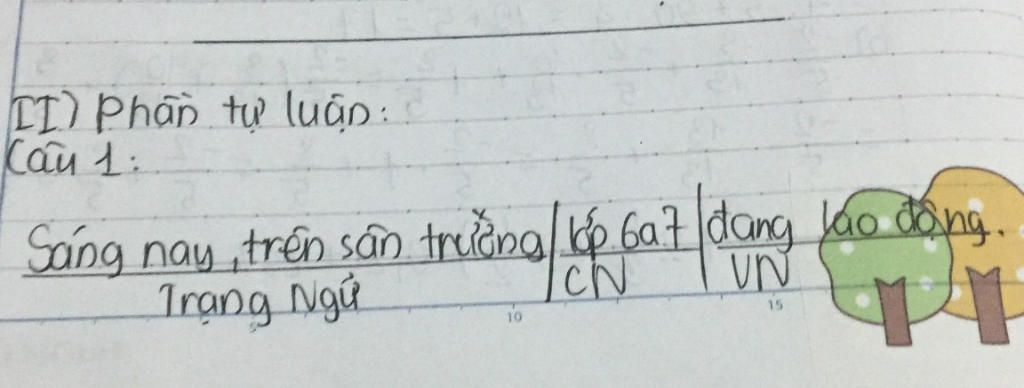 II) Phần tự luận:
Câu 1:
Sáng nay, trên sân trường | lớp 6a7 | đang lao động.
Trạng Ngữ CN VN
10 15